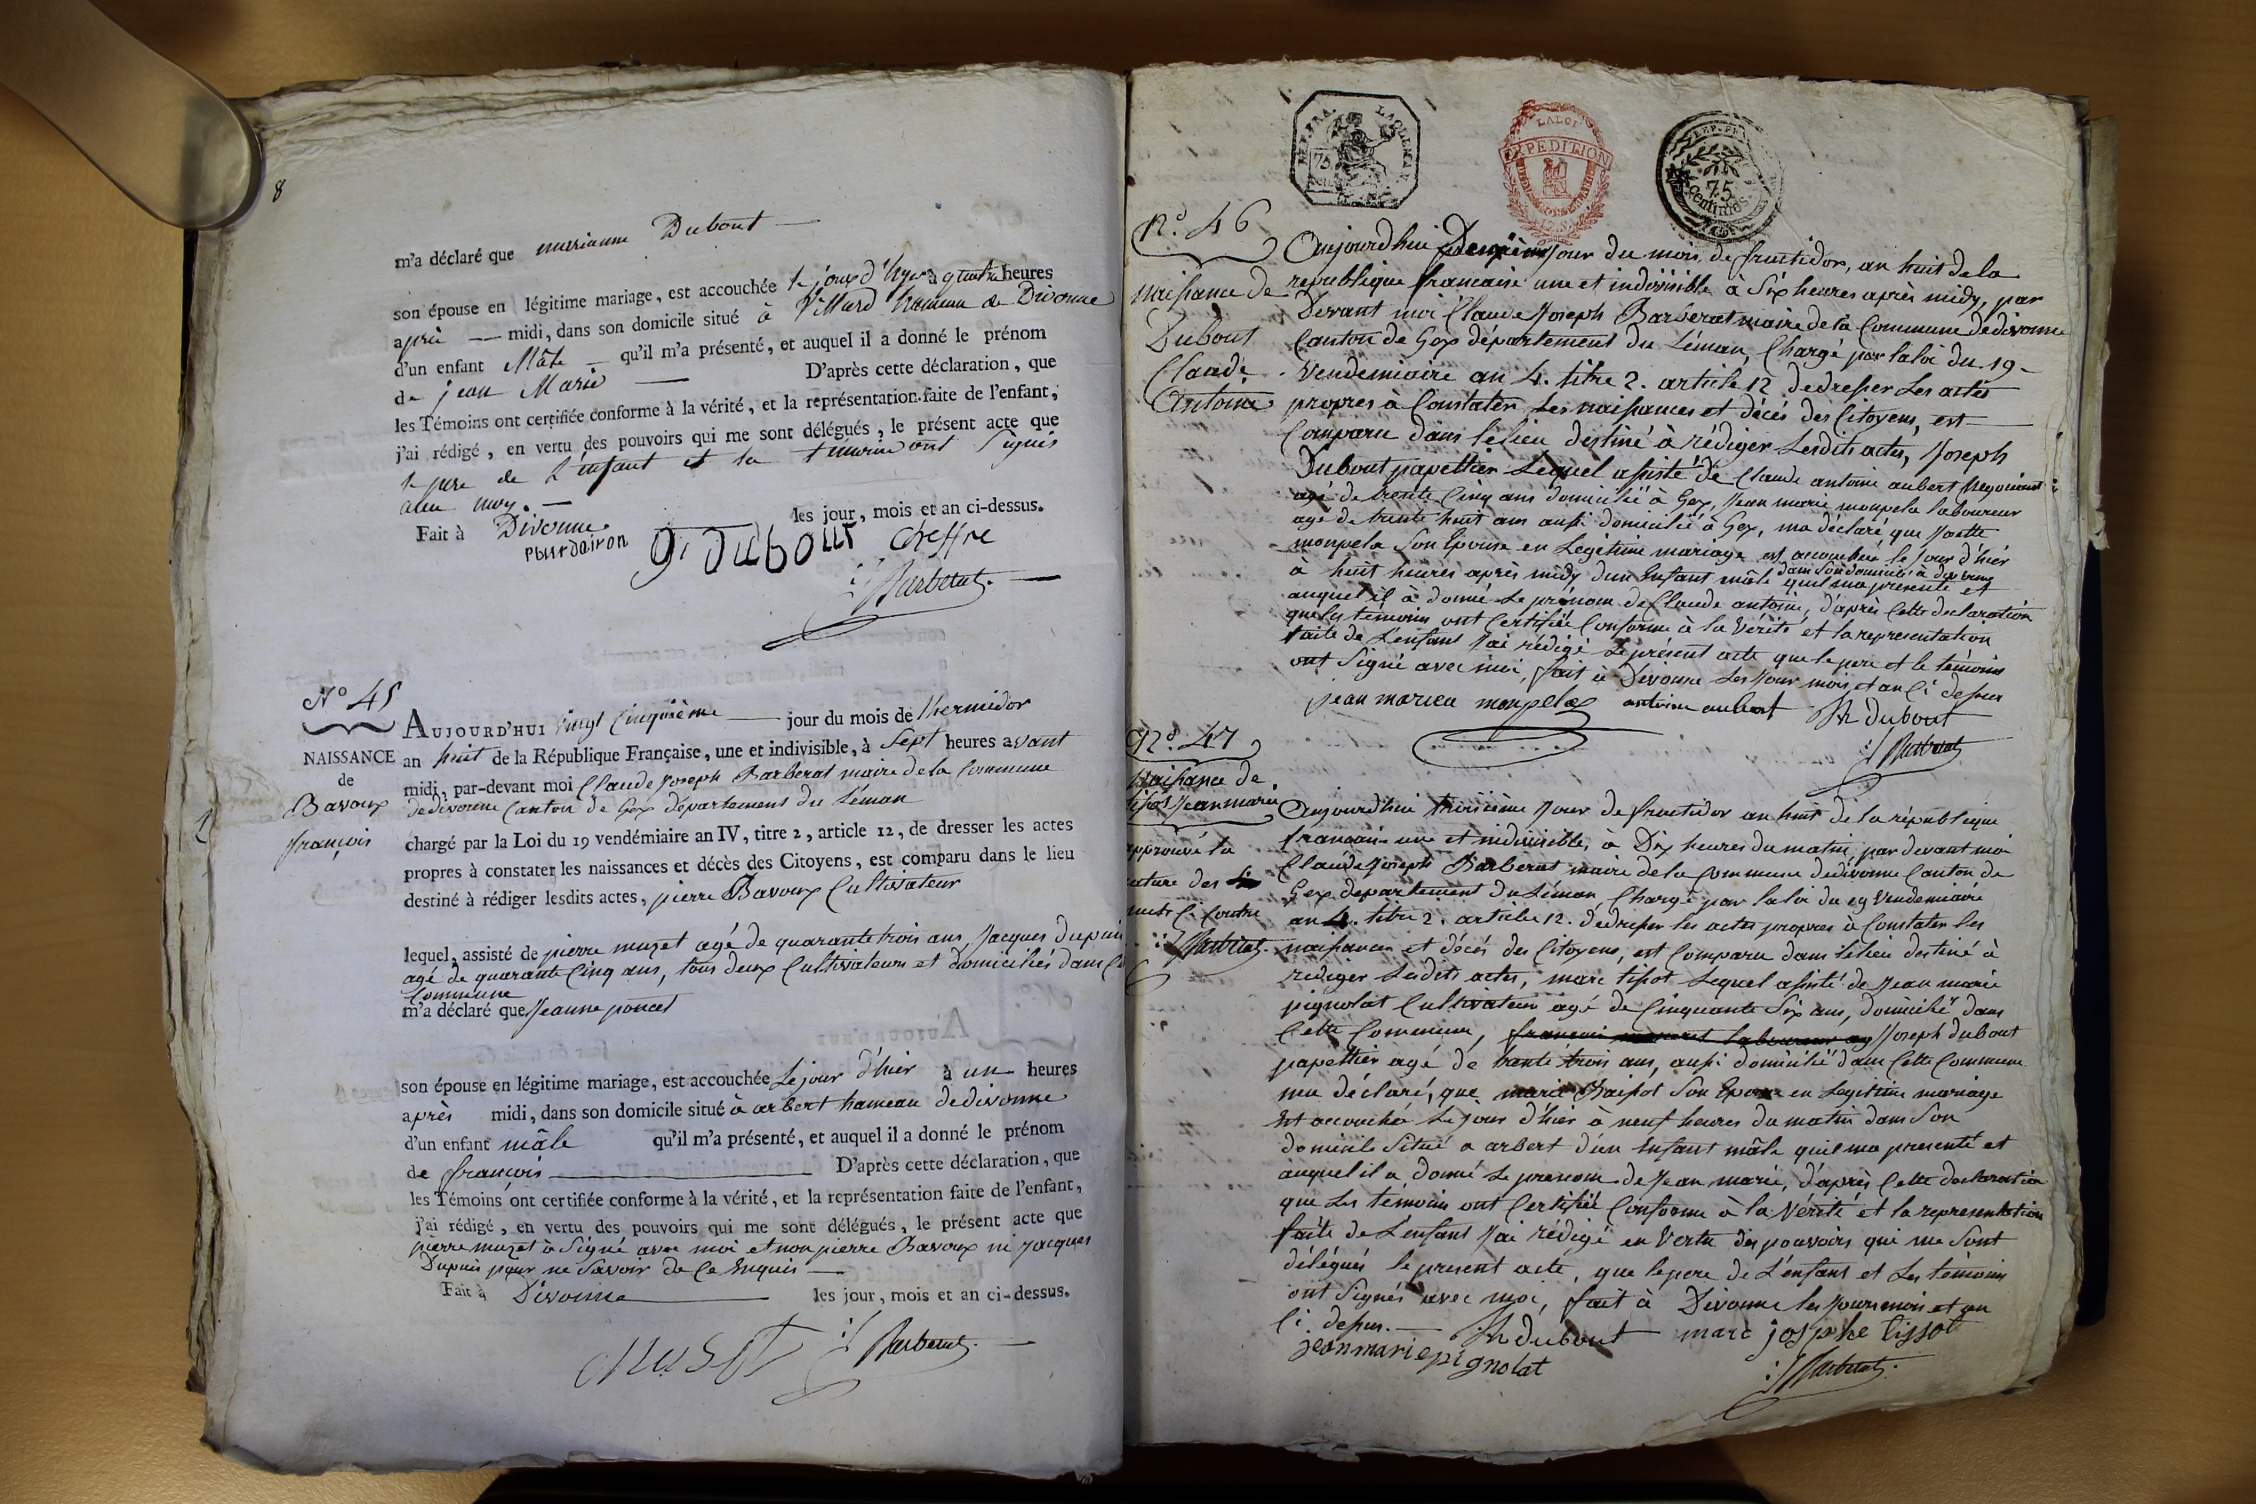 8
m'a déclaré que marianne Dubout
son épouse en légitime mariage, est accouchée le jour d'hyer à quatre heures
après midi, dans son domicile situé à Villard hameau de Divonne
d'un enfant Mâle qu'il m'a présenté, et auquel il a donné le prénom
de jean Marie D'après cette déclaration, que
les Témoins ont certifiée conforme à la vérité, et la représentation faite de l'enfant,
j'ai rédigé, en vertu des pouvoirs qui me sont délégués, le présent acte que
le pere de L'enfant et les témoins ont Signés
avec moy.
Fait à Divonne les jour, mois et an ci-dessus.
Pourdairon g. Dubout Cheffre
Barberat.
N.° 45
NAISSANCE
de
Bavoux
françois
AUJOURD'HUI vingt Cinquième jour du mois de thermidor
an huit de la République Française, une et indivisible, à Sept heures avant
midi, par-devant moi Claude Joseph Barberat maire de la Commune
de divonne Canton de Gex département du Léman
chargé par la Loi du 19 vendémiaire an IV, titre 2, article 12, de dresser les actes
propres à constater les naissances et décès des Citoyens, est comparu dans le lieu
destiné à rédiger lesdits actes, pierre Bavoux Cultivateur
lequel, assisté de pierre muzet agé de quarante trois ans, Jacques dupuis
agé de quarante Cinq ans, tous deux Cultivateurs et domiciliés dans
Commune
m'a déclaré que Jeanne poncet
son épouse en légitime mariage, est accouchée Le jour d'hier à un heures
après midi, dans son domicile situé à arbert hameau de divonne
d'un enfant mâle qu'il m'a présenté, et auquel il a donné le prénom
de françois D'après cette déclaration, que
les Témoins ont certifiée conforme à la vérité, et la représentation faite de l'enfant,
j'ai rédigé, en vertu des pouvoirs qui me sont délégués, le présent acte que
pierre muzet à Signé avec moi et non pierre Bavoux ni jacques
Dupuis pour ne Savoir de Ce Enquis
Fait à Divonne les jour, mois et an ci-dessus.
Muset Barberat.
REP. FRA. 75 CENT.
LA LOI
EXPEDITION
REP. FRA. 75 centimes
N.° 46
Naissance de
Dubout
Claude
Antoine
Aujourdhui Deuxième Jour du mois de fructidor, an huit de la
republique francaise une et indivisible à Six heures après midy, par
Devant moi Claude Joseph Barberat maire de la Commune de divonne
Canton de Gex département du Léman, Chargé par la loi du 19
Vendemiaire an 4. titre 2. article 12 de dresser Les actes
propres à Constater Les naissances et décès des Citoyens, est
Comparu dans le lieu destiné à rédiger Lesdits actes, Joseph
Dubout papettier Lequel assisté de Claude antoine aubert Negociant
agé de trente Cinq ans domicilié à Gex, Jean marie monpela laboureur
agé de trente huit ans aussi domicilié à Gex, ma déclaré, que Josette
monpela Son Epouse en Legitime mariage est accouchée le Jour d'hier
dans Son domicile à divonne
à huit heures après midy d'un Enfant mâle quil ma présenté et
auquel il à donné Le prénom de Claude antoine, d'après Cette declaration
que les témoins ont Certifiée Conforme à la Vérité et la representation
faite de L'enfant Jai rédigé Le présent acte que le pere et le témoins
ont Signé avec moi, fait à Divonne Les Jour mois et an Ci dessus
jean mariea monpelas antoine aubert Jh dubout
Barberat
N.° 47
Naissance de
tissot Jean marie
approuvé la
rature des
Barberat.
Aujourdhui troisième Jour de fructidor an huit de la république
francaise une et indivisible, à Dix heures du matin, par devant moi
Claude Joseph Barberat maire de la Commune de divonne Canton de
Gex departement du Léman Chargé par la loi du 19 Vendemiaire
an 4. titre 2. article 12. de dresser les actes propres à Constater les
naissances et décès des Citoyens, est Comparu dans le lieu destiné à
rédiger Lesdits actes, marc tissot Lequel assisté de Jean marie
pignolat Cultivateur agé de Cinquante Six ans, domicilié dans
Cette Commune, Joseph dubout
papettier agé de trente trois ans, aussi domicilié dans Cette Commune
ma déclaré, que marie Son Epouse en Legitime mariage
Est accouchée Le Jour d'hier à neuf heures du matin dans Son
domicile Situé à arbert d'un Enfant mâle quil ma presenté et
auquel il a donné Le prenom de Jean marie, d'après Cette declaration
que Les témoins ont Certifiée Conforme à la Vérité et la representation
faite de L'enfant Jai rédigé en Vertu des pouvoirs qui me Sont
délégués le present acte, que le pere de L'enfant et Les témoins
ont Signés avec moi, fait à Divonne les Jour mois et an
Ci dessus. Jh dubout marc josphe tissot
jean marie pignolat
Barberat.